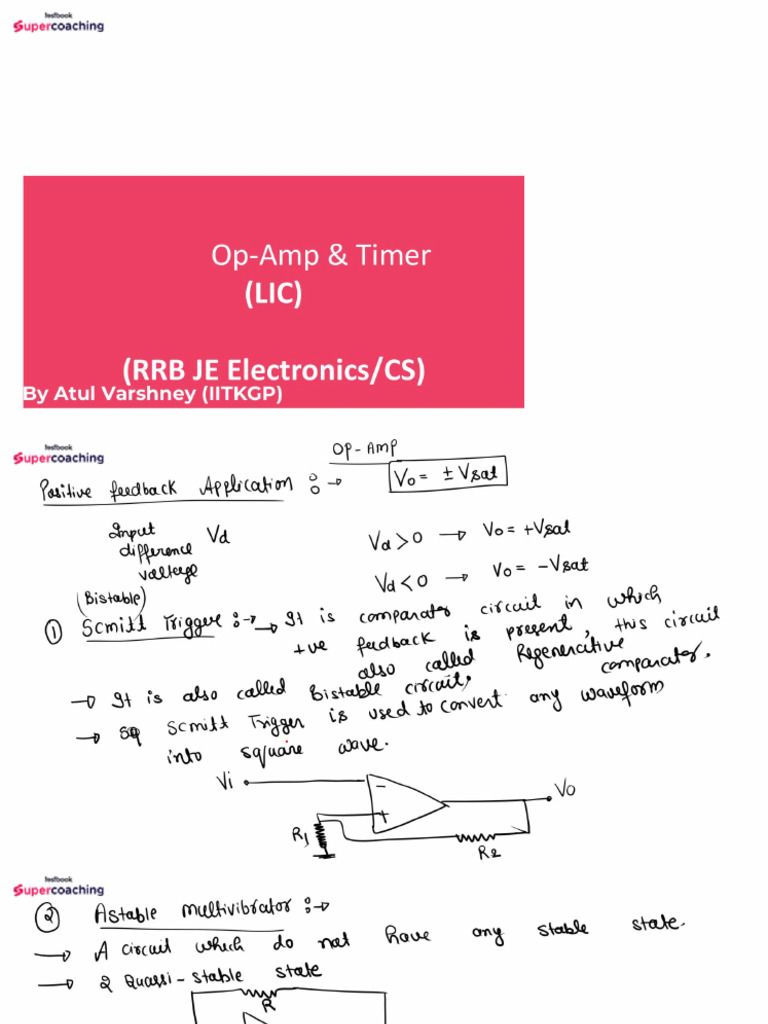 testbook
Supercoaching
Op-Amp & Timer
(LIC)
(RRB JE Electronics/CS)
By Atul Varshney (IITKGP)
testbook
Supercoaching
OP-AMP
Positive feedback Application :-> Vo = ± Vsat
Input difference voltage Vd
Vd > 0 → Vo = +Vsat
Vd < 0 → Vo = -Vsat
(Bistable)
① Scmitt Trigger :-> → It is comparator circuit in which
+ve feedback is present, this circuit
also called Regenerative comparator.
→ It is also called Bistable circuit,
→ Scmitt Trigger is used to convert any waveform
into square wave.
Vi
-
+
Vo
R1
R2
testbook
Supercoaching
② Astable multivibrator :->
→ A circuit which do not have any stable state.
→ 2 Quassi-stable state
R